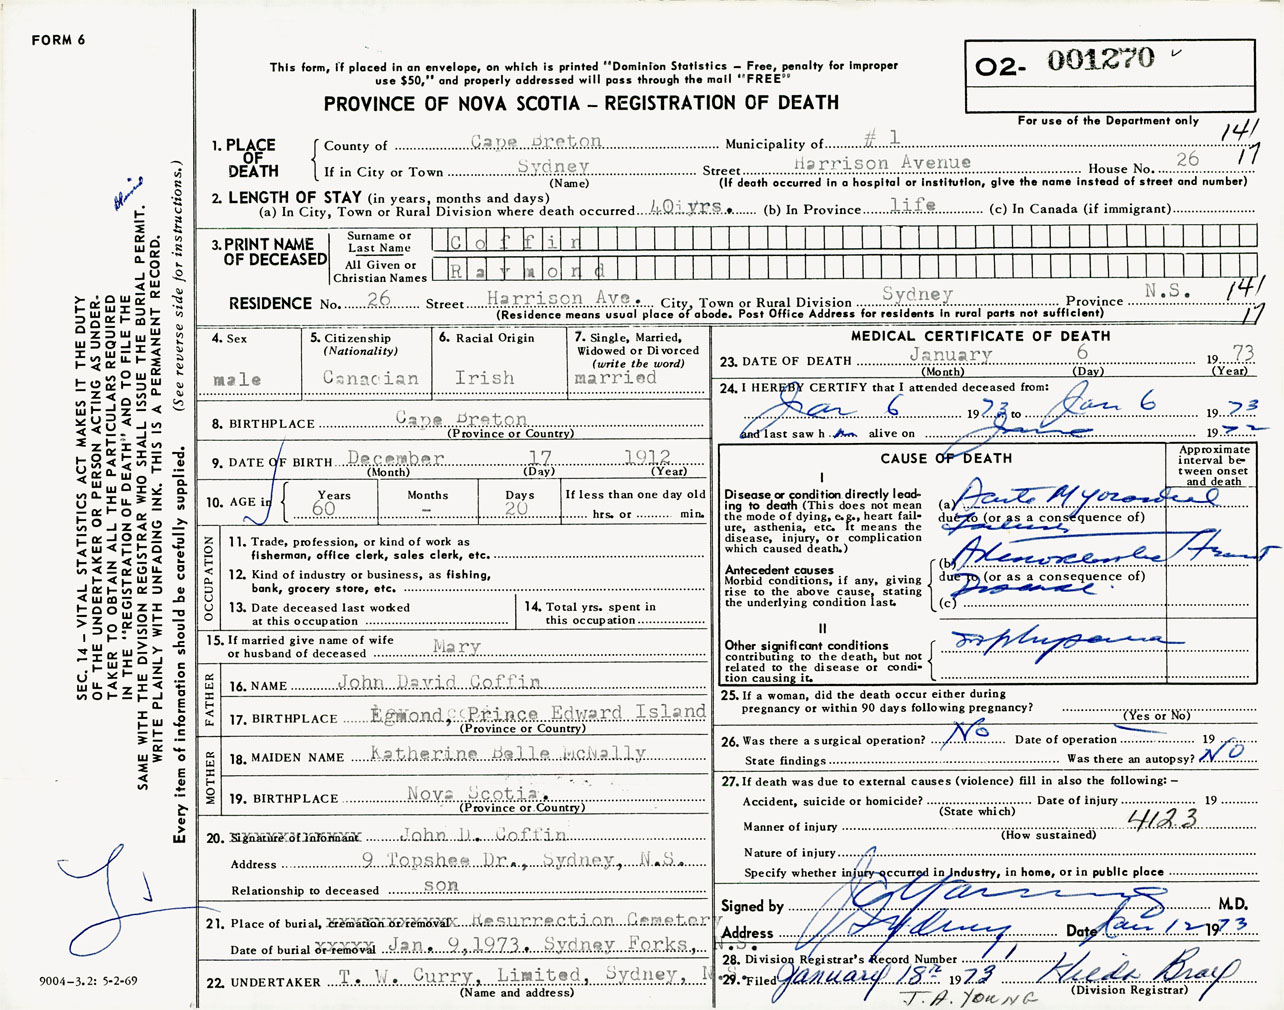 FORM 6
This form, if placed in an envelope, on which is printed "Dominion Statistics – Free, penalty for improper
use $50," and properly addressed will pass through the mail "FREE"
PROVINCE OF NOVA SCOTIA – REGISTRATION OF DEATH
02- 001270
For use of the Department only
141
17
1. PLACE OF DEATH
County of Cape Breton Municipality of # 1
If in City or Town Sydney Street Harrison Avenue House No. 26
(Name) (If death occurred in a hospital or institution, give the name instead of street and number)
2. LENGTH OF STAY (in years, months and days)
(a) In City, Town or Rural Division where death occurred 40 yrs. (b) In Province life (c) In Canada (if immigrant)
3. PRINT NAME OF DECEASED
Surname or Last Name Coffin
All Given or Christian Names Raymond
RESIDENCE No. 26 Street Harrison Ave. City, Town or Rural Division Sydney Province N.S. 141
(Residence means usual place of abode. Post Office Address for residents in rural parts not sufficient) 17
4. Sex
male
5. Citizenship
(Nationality)
Canadian
6. Racial Origin
Irish
7. Single, Married,
Widowed or Divorced
(write the word)
married
8. BIRTHPLACE Cape Breton
(Province or Country)
9. DATE OF BIRTH December 17 1912
(Month) (Day) (Year)
10. AGE in
Years Months Days If less than one day old
60 – 20 hrs. or min.
OCCUPATION
11. Trade, profession, or kind of work as
fisherman, office clerk, sales clerk, etc.
12. Kind of industry or business, as fishing,
bank, grocery store, etc.
13. Date deceased last worked
at this occupation
14. Total yrs. spent in
this occupation
15. If married give name of wife
or husband of deceased Mary
FATHER
16. NAME John David Coffin
17. BIRTHPLACE Egmond, Prince Edward Island
(Province or Country)
MOTHER
18. MAIDEN NAME Katherine Belle McNally
19. BIRTHPLACE Nova Scotia.
(Province or Country)
20. Signature of informant John D. Coffin
Address 9 Topshee Dr., Sydney, N.S.
Relationship to deceased son
21. Place of burial, cremation or removal Resurrection Cemetery
Date of burial or removal Jan. 9,1973. Sydney Forks, N.S.
22. UNDERTAKER T. W. Curry, Limited, Sydney, N.S.
(Name and address)
MEDICAL CERTIFICATE OF DEATH
23. DATE OF DEATH January 6 1973
(Month) (Day) (Year)
24. I HEREBY CERTIFY that I attended deceased from:
Jan 6 1973 to Jan 6 1973
and last saw him alive on June 1972
CAUSE OF DEATH
Approximate
interval be-
tween onset
and death
I
Disease or condition directly lead-
ing to death (This does not
mean the mode of dying, e.g., heart fail-
ure, asthenia, etc. It means the
disease, injury, or complication
which caused death.)
(a) Acute Myocardial
due to (or as a consequence of)
Failure
Antecedent causes
Morbid conditions, if any, giving
rise to the above cause, stating
the underlying condition last.
(b) Heart
due to (or as a consequence of)
Disease
(c)
II
Other significant conditions
contributing to the death, but not
related to the disease or condi-
tion causing it.
25. If a woman, did the death occur either during
pregnancy or within 90 days following pregnancy?
(Yes or No)
26. Was there a surgical operation? No Date of operation 19
State findings Was there an autopsy? NO
27. If death was due to external causes (violence) fill in also the following: –
Accident, suicide or homicide? Date of injury 19
(State which)
Manner of injury 4123
(How sustained)
Nature of injury
Specify whether injury occurred in Industry, in home, or in public place
Signed by M.D.
Address Sydney Date Jan 12 1973
28. Division Registrar's Record Number 11
29. Filed January 18th 1973 Hilda Bray
(Division Registrar)
J.A. YOUNG
SEC. 14 – VITAL STATISTICS ACT MAKES IT THE DUTY
OF THE UNDERTAKER OR PERSON ACTING AS UNDER-
TAKER TO OBTAIN ALL THE PARTICULARS REQUIRED
IN THE "REGISTRATION OF DEATH" AND TO FILE THE
SAME WITH THE DIVISION REGISTRAR WHO SHALL ISSUE THE BURIAL PERMIT.
WRITE PLAINLY WITH UNFADING INK. THIS IS A PERMANENT RECORD.
Every item of information should be carefully supplied. (See reverse side for instructions.)
9004–3.2: 5-2-69